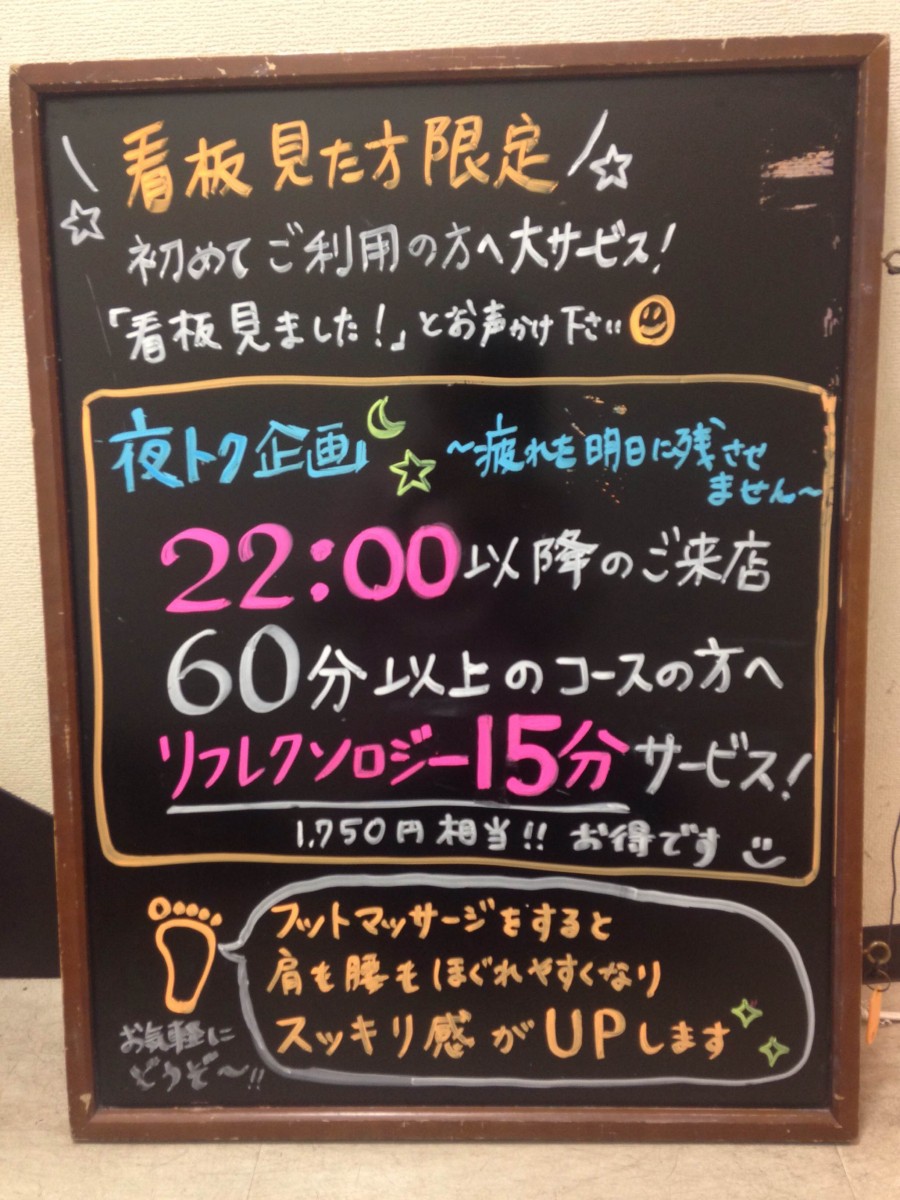 看板見た方限定
初めてご利用の方へ大サービス!
「看板見ました!」とお声かけ下さい
夜トク企画
~疲れを明日に残させ
ません~
22:00以降のご来店
60分以上のコースの方へ
リフレクソロジー15分サービス!
1,750円相当!! お得です
フットマッサージをすると
肩も腰もほぐれやすくなり
スッキリ感がUPします
お気軽に
どうぞ〜!!